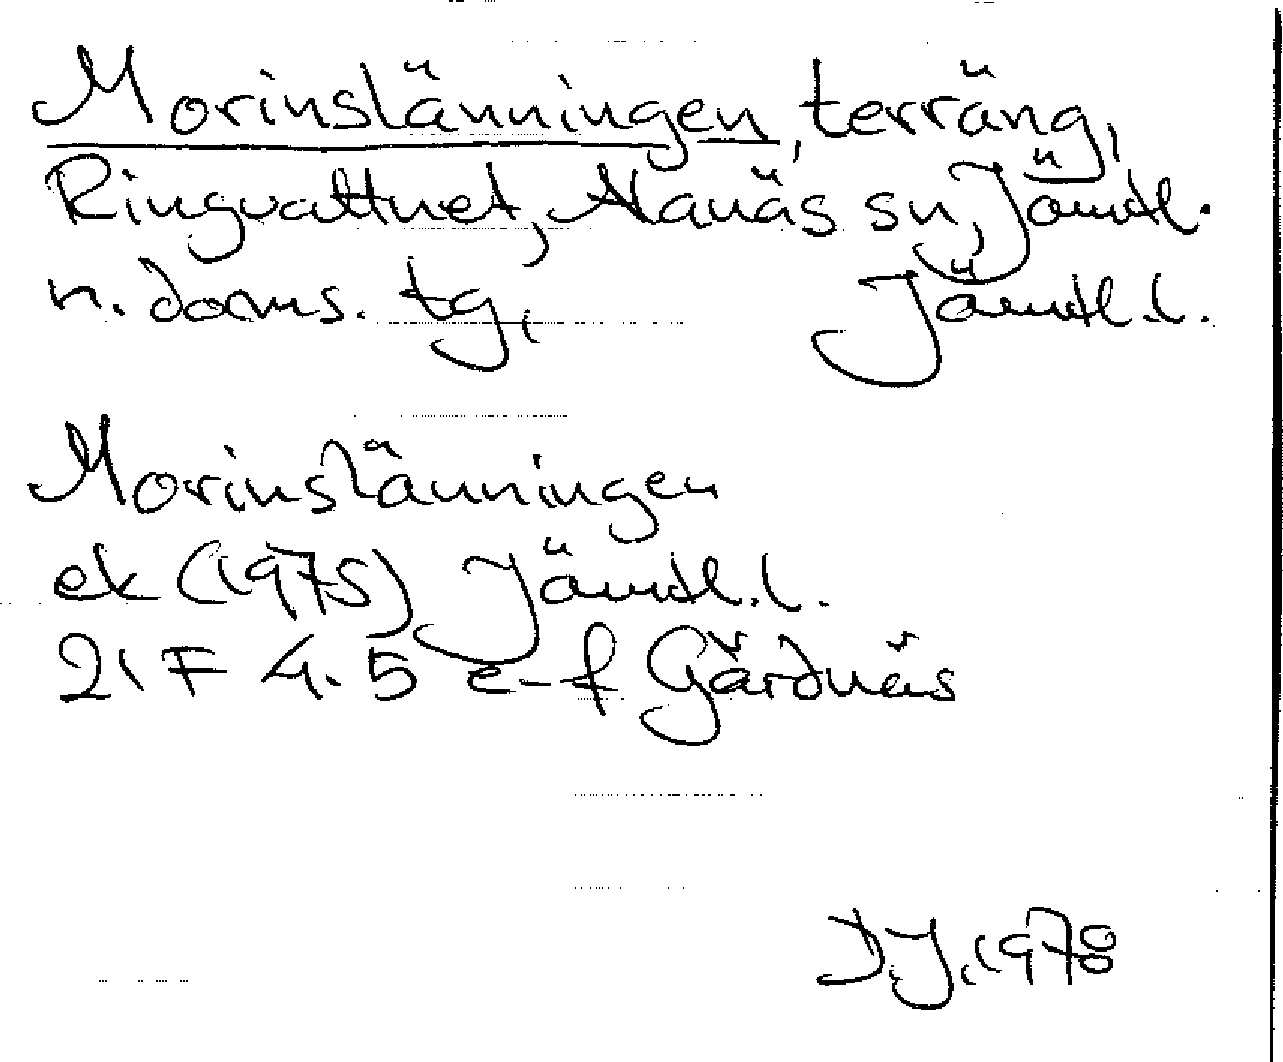 Morinslänningen, terräng,
Ringvattnet, Alanäs sn, Jämtl.
n. doms. tg, Jämtl.l.
Morinslänningen
ek (1975) Jämtl.l.
21F 4-5 e-f Gärdnäs
D.J. 1978